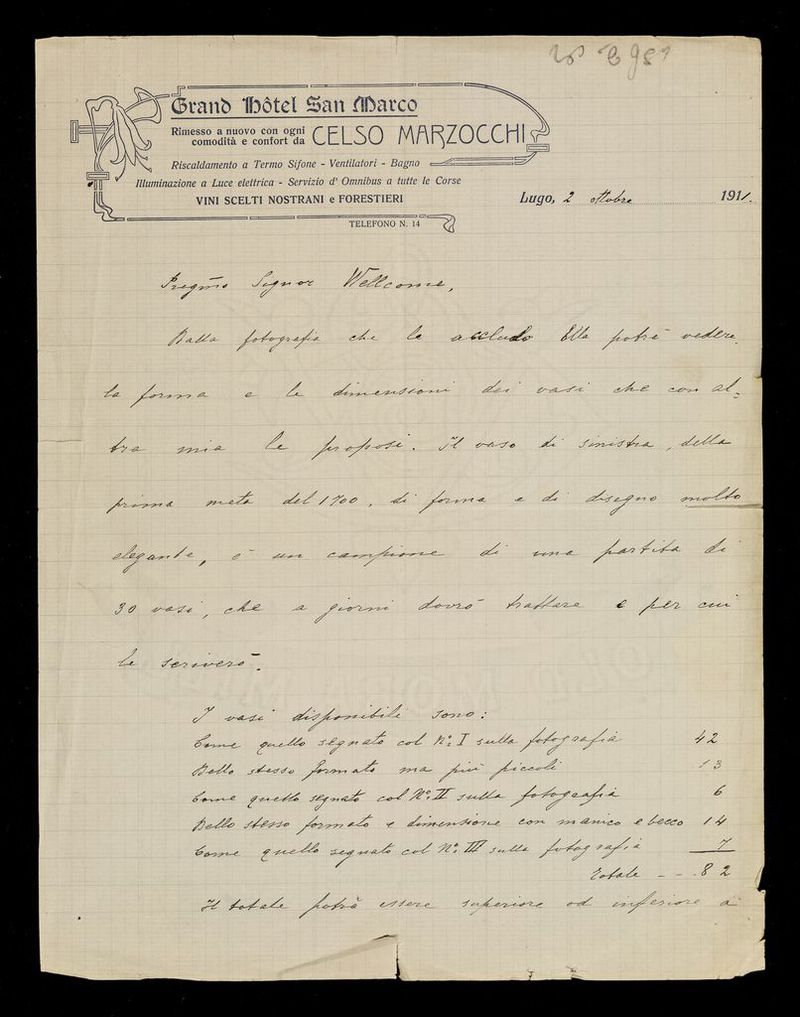 Grand Hôtel San Marco
Rimesso a nuovo con ogni
comodità e confort da CELSO MARZOCCHI
Riscaldamento a Termo Sifone - Ventilatori - Bagno
Illuminazione a Luce elettrica - Servizio d' Omnibus a tutte le Corse
VINI SCELTI NOSTRANI e FORESTIERI
Lugo, 2 ottobre 1911.
TELEFONO N. 14
Pregmo Signor Wellcome,
Dalla fotografia che le accludo Ella potrà vedere
la forma e le dimensioni dei vasi che con al=
tra mia le proposi. Il vaso di sinistra, della
prima metà del 1700, di forma e di disegno molto
elegante, è un campione di una partita di
30 vasi, che a giorni dovrò trattare e per cui
le scriverò.
I vasi disponibili sono:
Come quello segnato col No. I sulla fotografia 42
Dello stesso formato ma più piccoli 13
Come quello segnato col No. II sulla fotografia 6
Dello stesso formato e dimensione con manico e becco 14
Come quello segnato col No. III sulla fotografia 7
Totale - - . 82
Il totale potrà essere superiore od inferiore a